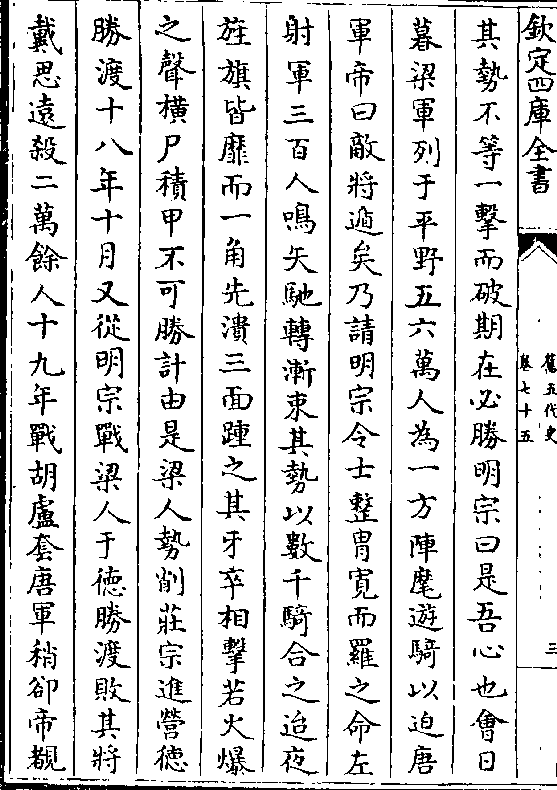 欽定四庫全書
舊五代史
卷七十五
三
其勢不等一擊而破期在必勝明宗曰是吾心也會日
暮梁軍列于平野五六萬人為一方陣麾遊騎以迫唐
軍帝曰敵將遁矣乃請明宗令士整胄寛而羅之命左
射軍三百人鳴矢馳轉漸束其勢以數千騎合之迨夜
旌旗皆靡而一角先潰三面踵之其牙卒相擊若火爆
之聲橫尸積甲不可勝計由是梁人勢削莊宗進營德
勝渡十八年十月又從明宗戰梁人于德勝渡敗其將
戴思遠殺二萬餘人十九年戰胡盧套唐軍稍卻帝覩